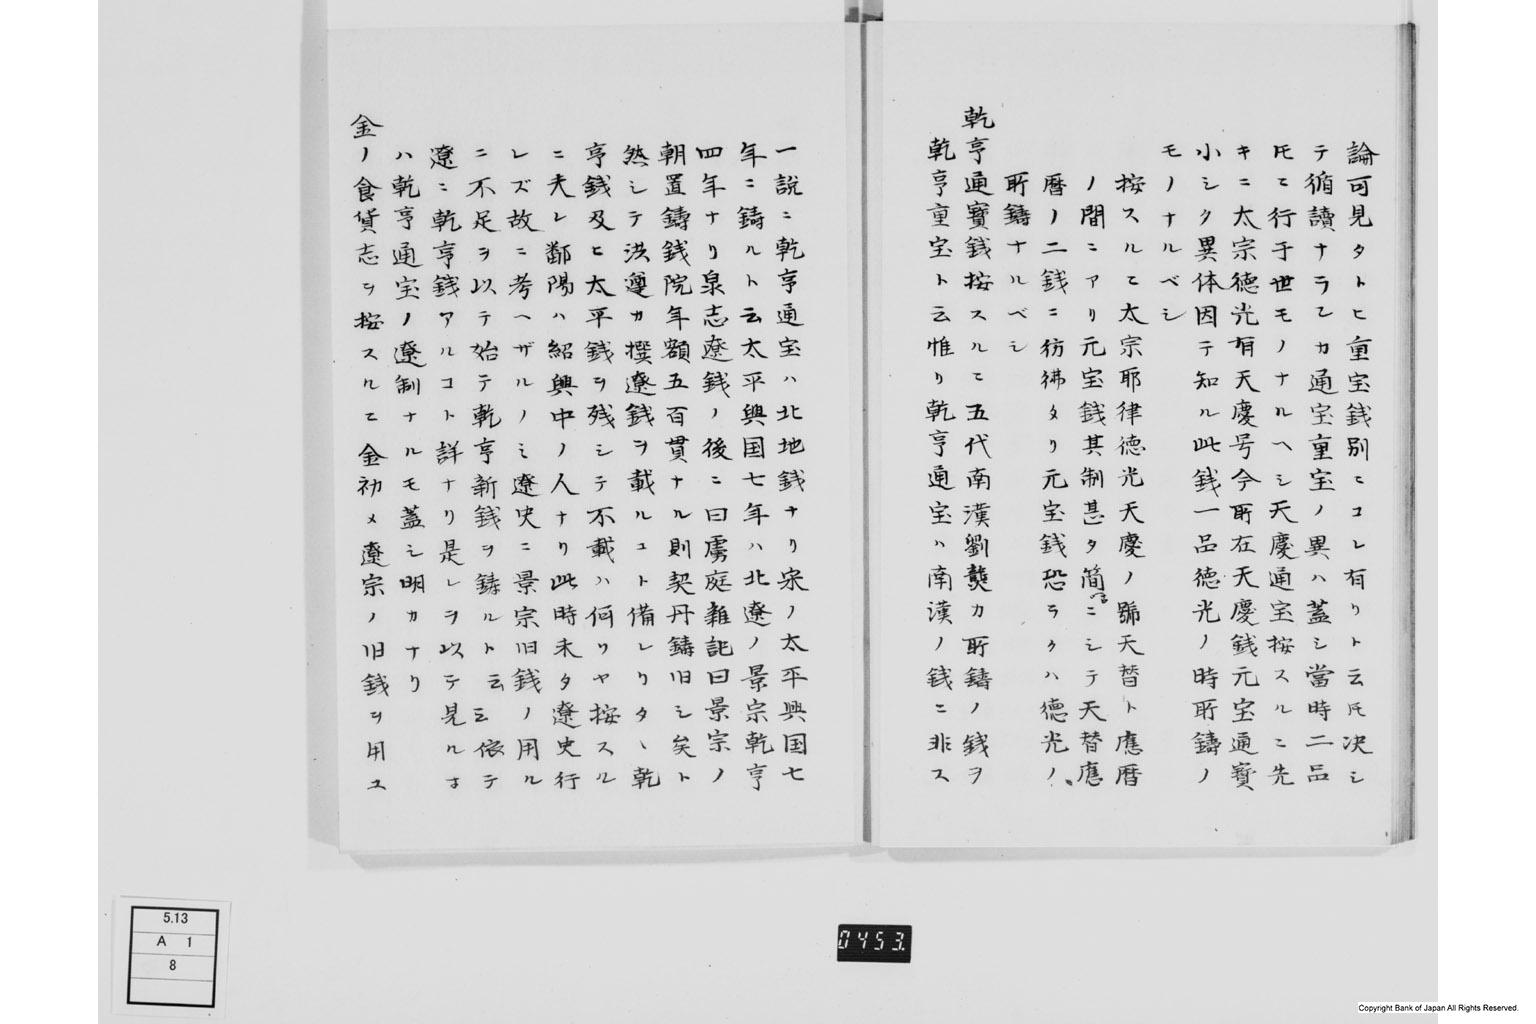 論可見タトヒ重宝銭別ニコレ有リト云𪜈决シ
テ循讀ナラズカ通宝重宝ノ異ハ蓋シ當時二品
𪜈ニ行于世モノナルヘシ天慶通宝按スルニ先
キニ太宗德光有天慶号今所在天慶銭元宝通寳
小シク異体因テ知ル此銭一品徳光ノ時所鑄ノ
モノナルベシ
按スルニ太宗耶律德光天慶ノ號天替ト應暦
ノ間ニアリ元宝銭其制甚タ簡ニシテ天替應
暦ノ二銭ニ彷彿タリ元宝銭恐ラクハ德光ノ
所鑄ナルベシ
乾亨通寳銭按スルニ五代南漢劉龑カ所鑄ノ銭ヲ
乾亨重宝ト云惟リ乾亨通宝ハ南漢ノ銭ニ非ス
一説ニ乾亨通宝ハ北地銭ナリ宋ノ太平興国七
年ニ鑄ルト云太平興国七年ハ北遼ノ景宗乾亨
四年ナリ泉志遼銭ノ後ニ曰虜庭雜記曰景宗ノ
朝置鑄銭院年額五百貫ナル則契丹鑄旧シ矣ト
然シテ洪遵カ撰遼銭ヲ載ルコト備レリタヽ乾
亨銭及ヒ太平銭ヲ残シテ不載ハ何リヤ按スル
ニ夫レ鄱陽ハ紹興中ノ人ナリ此時未タ遼史行
レズ故ニ考ヘザルノミ遼史ニ景宗旧銭ノ用ル
ニ不足ヲ以テ始テ乾亨新銭ヲ鋳ルト云云依テ
遼ニ乾亨銭アルコト詳ナリ是レヲ以テ見ルオ
ハ乾亨通宝ノ遼制ナルモ蓋シ明カナリ
金ノ食貨志ヲ按スルニ金初メ遼宗ノ旧銭ヲ用ユ
5.13
A 1
8
0453
Copyright Bank of Japan All Rights Reserved.